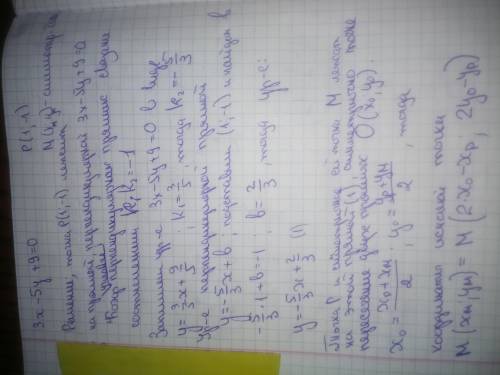 3x-5y+9=0 P(1,-1)
Решение, точка P(1,-1) лежит M(xм,yм)-симметр.
на прямой, перпендикулярной 3x-5y+9=0
перпендикулярных прямых связаны
соотношением k₁·k₂=-1
Запишем ур-е 3x-5y+9=0 в виде
y=3/5x+9/5 ; k₁=3/5, тогда k₂=-5/3
Ур-е перпендикулярной прямой
y=-5/3x+b; подставим (1,-1) и найдем b
-5/3·1+b=-1; b=2/3, тогда ур-е:
y=-5/3x+2/3 (1)
Точка P и симметричная ей точка M лежат
на этой прямой (1) симметрично точке
пересечения двух прямых O(x₀,y₀).
x₀=(xp+xм)/2, y₀=(yp+yм)/2, тогда
координаты искомой точки
M(xм,yм)=M(2·x₀-xp, 2y₀-yp)